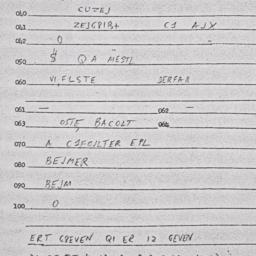 040 CUTEJ
041 ZEJGPIB+ C1 AJX
042 0
050 Š Q A MESTL
060 VI, FLSTE SERFAR
061 — 062 —
063 OSIE, BACOLT 064
070 A C1FCILTER EPL
080 BEJMER
090 BEJM
100 0
ERT GPEVEN QI ER 12 GEVEN